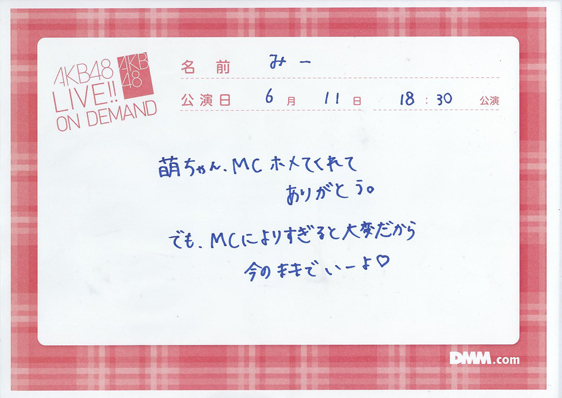 AKB48
LIVE!!
ON DEMAND
AKB
48
名前 みー
公演日 6月 11日 18:30 公演
萌ちゃん、MCホメてくれて
ありがとう。
でも、MCによりすぎると大変だから
今のままでいーよ♡
DMM.com